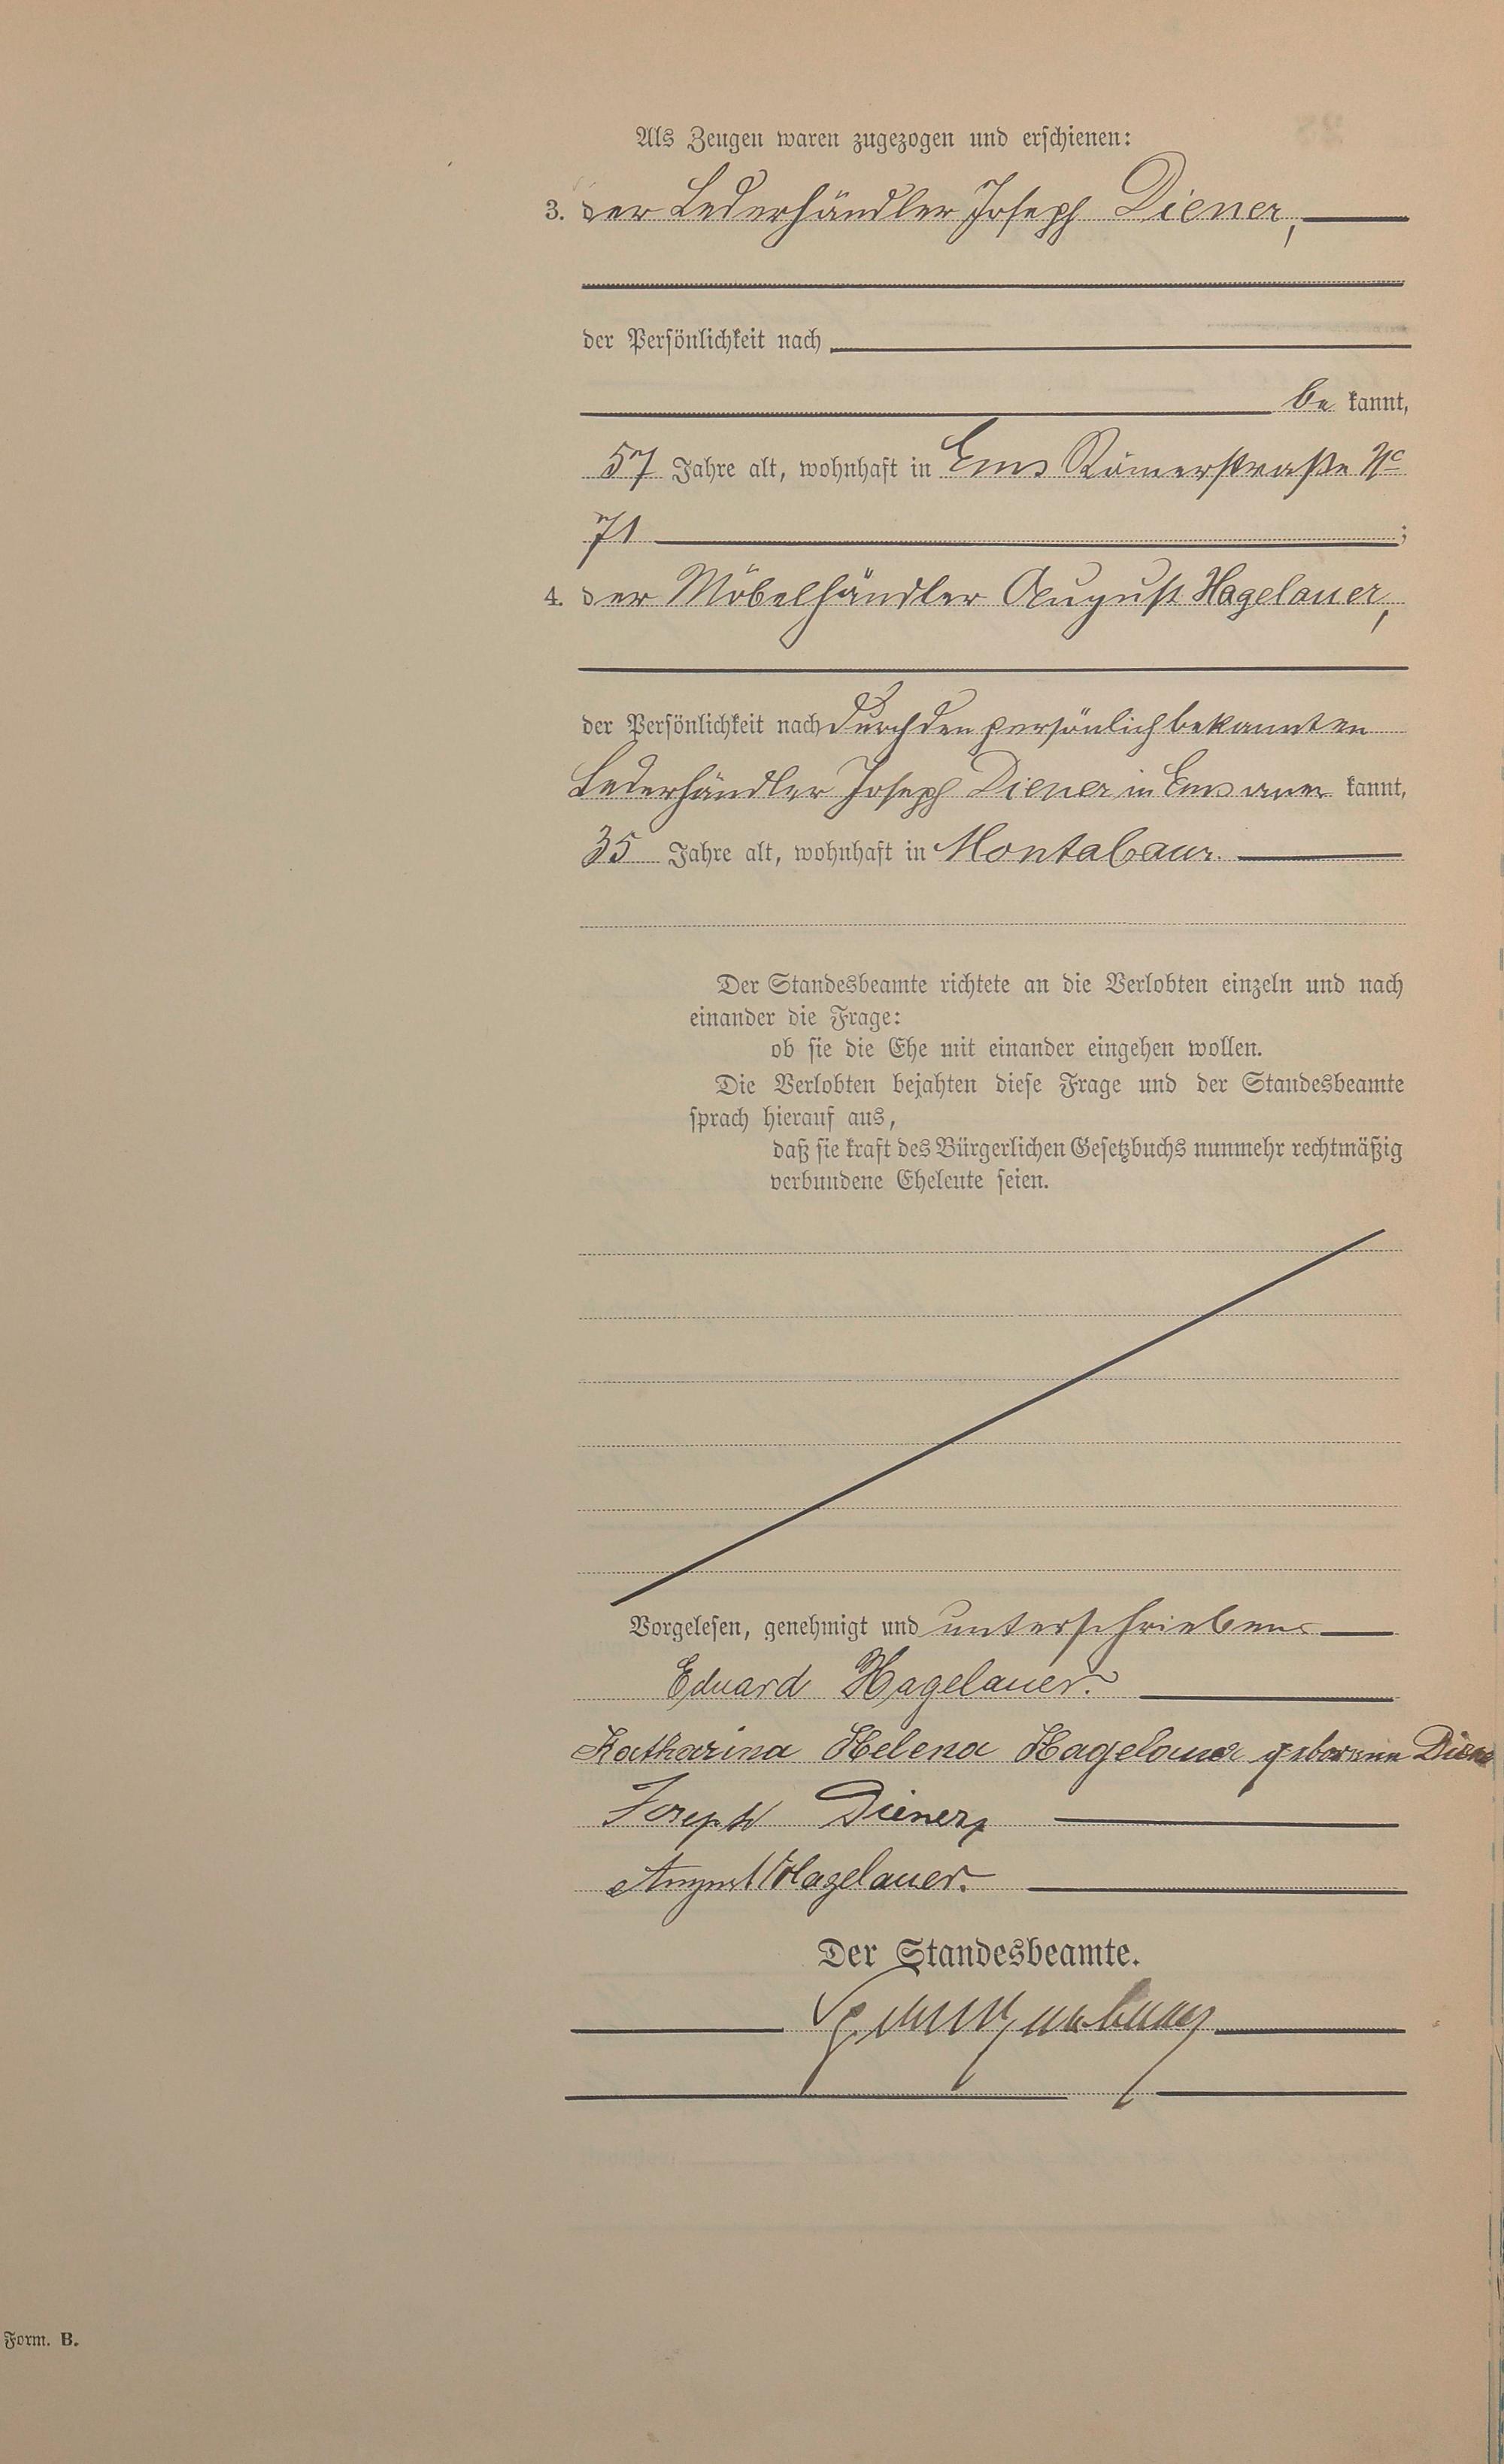 Als Zeugen waren zugezogen und erschienen:
3. der Lederhändler Joseph Diener,
der Persönlichkeit nach
be kannt,
57 Jahre alt, wohnhaft in Ems Römerstraße No
71 ;
4. der Möbelhändler August Hagelauer,
der Persönlichkeit nach durch den persönlich bekannten
Lederhändler Joseph Diener in Ems aner kannt,
35 Jahre alt, wohnhaft in Montabaur.
Der Standesbeamte richtete an die Verlobten einzeln und nach
einander die Frage:
ob sie die Ehe mit einander eingehen wollen.
Die Verlobten bejahten diese Frage und der Standesbeamte
sprach hierauf aus,
daß sie kraft des Bürgerlichen Gesetzbuchs nunmehr rechtmäßig
verbundene Eheleute seien.
Vorgelesen, genehmigt und unterschrieben
Eduard Hagelauer.
Katharina Helena Hagelauer geborene Diener
Joseph Diener
August Hagelauer.
Der Standesbeamte.
Form. B.